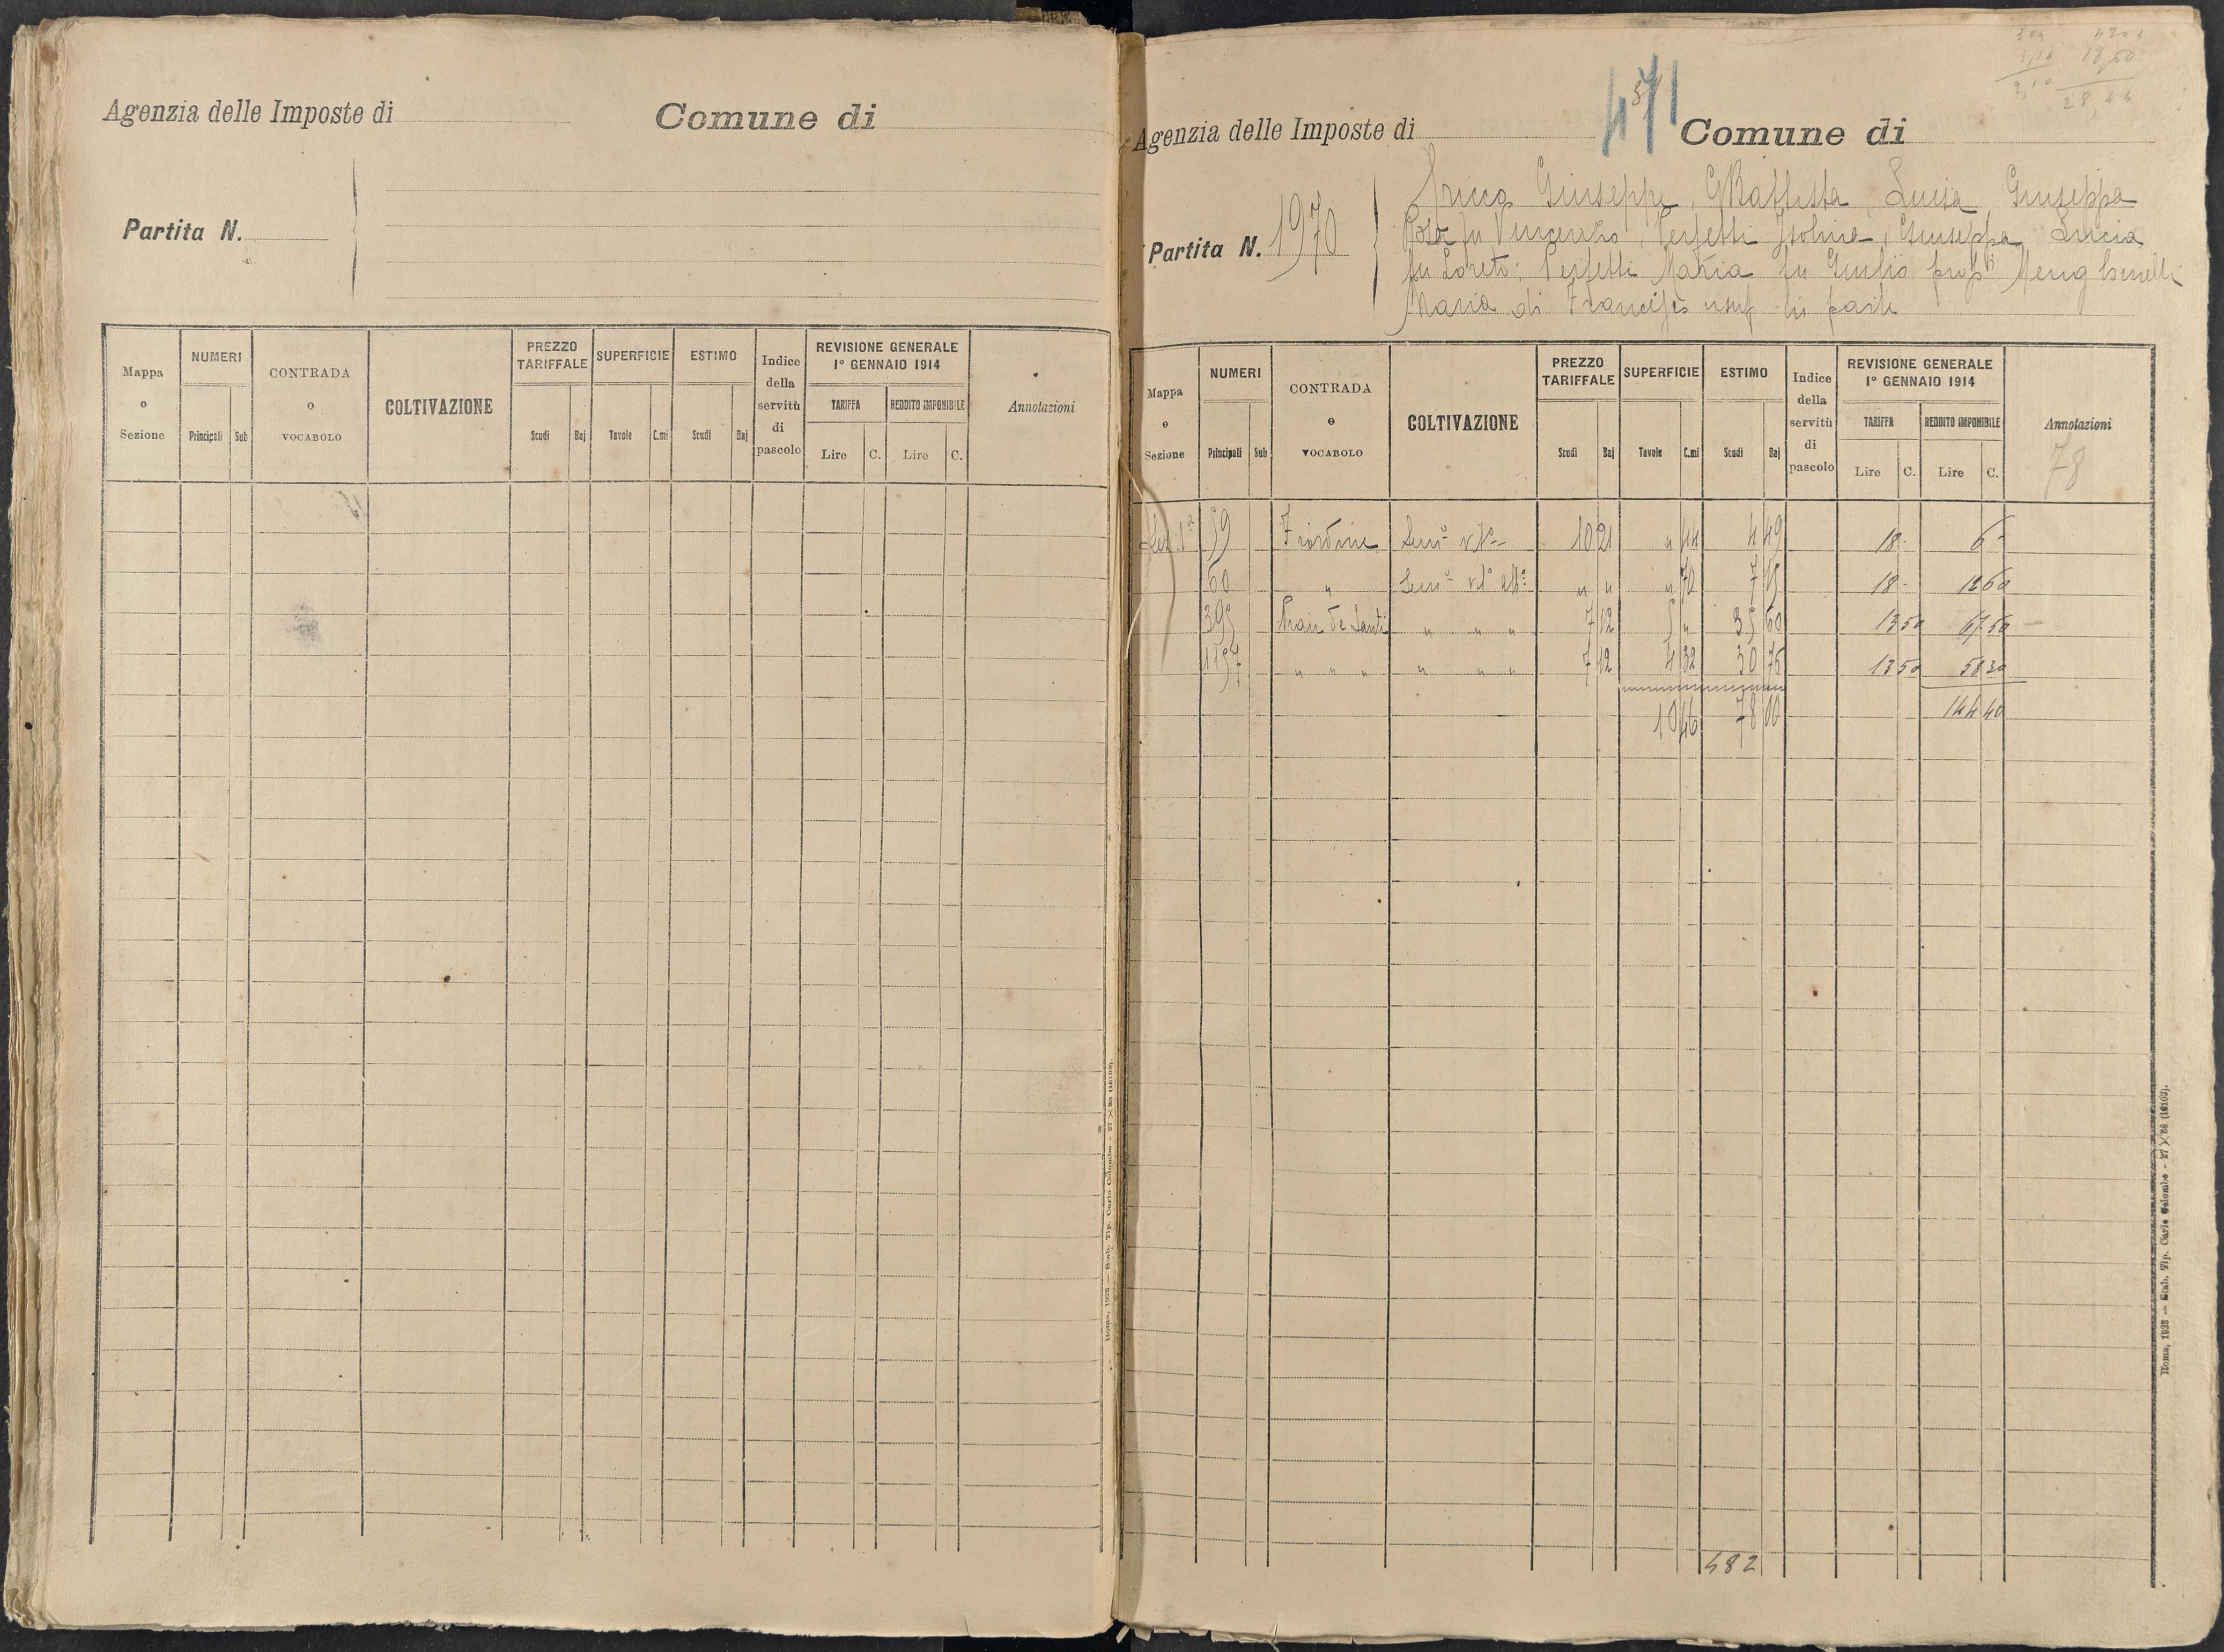 Agenzia delle Imposte di
Comune di
Partita N.
Mappa o Sezione
NUMERI
Principali Sub
CONTRADA o VOCABOLO
COLTIVAZIONE
PREZZO TARIFFALE
Scudi Baj
SUPERFICIE
Tavole C.mi
ESTIMO
Scudi Baj
Indice della servitù di pascolo
REVISIONE GENERALE
1º GENNAIO 1914
TARIFFA REDDITO IMPONIBILE
Lire C. Lire C.
Annotazioni
Agenzia delle Imposte di
Comune di
Partita N. 1970
Giuseppe, GBattista, Lucia, Giuseppa
Rosa fu Vincenzo, Perfetti Isoline, Giuseppa, Lucia
fu Loreto; Perfetti Maria fu Giulio
Maria di Francesco usuf in parte
Mappa o Sezione
NUMERI
Principali Sub
CONTRADA o VOCABOLO
COLTIVAZIONE
PREZZO TARIFFALE
Scudi Baj
SUPERFICIE
Tavole C.mi
ESTIMO
Scudi Baj
Indice della servitù di pascolo
REVISIONE GENERALE
1º GENNAIO 1914
TARIFFA REDDITO IMPONIBILE
Lire C. Lire C.
Annotazioni
78
Sez. 1ª 59 10 21 " 44 4 49 18 - 6 -
60 " " " " 70 7 15 18 - 12 60
395 " " " 7 12 5 " 35 60 13 50 67 50
1157 " " " " " " 7 12 4 32 30 76 13 50 58 30
10 46 78 00 144 40
482
Roma, 1923 — Stab. Tip. Carlo Colombo - 27 X 98 (16103).